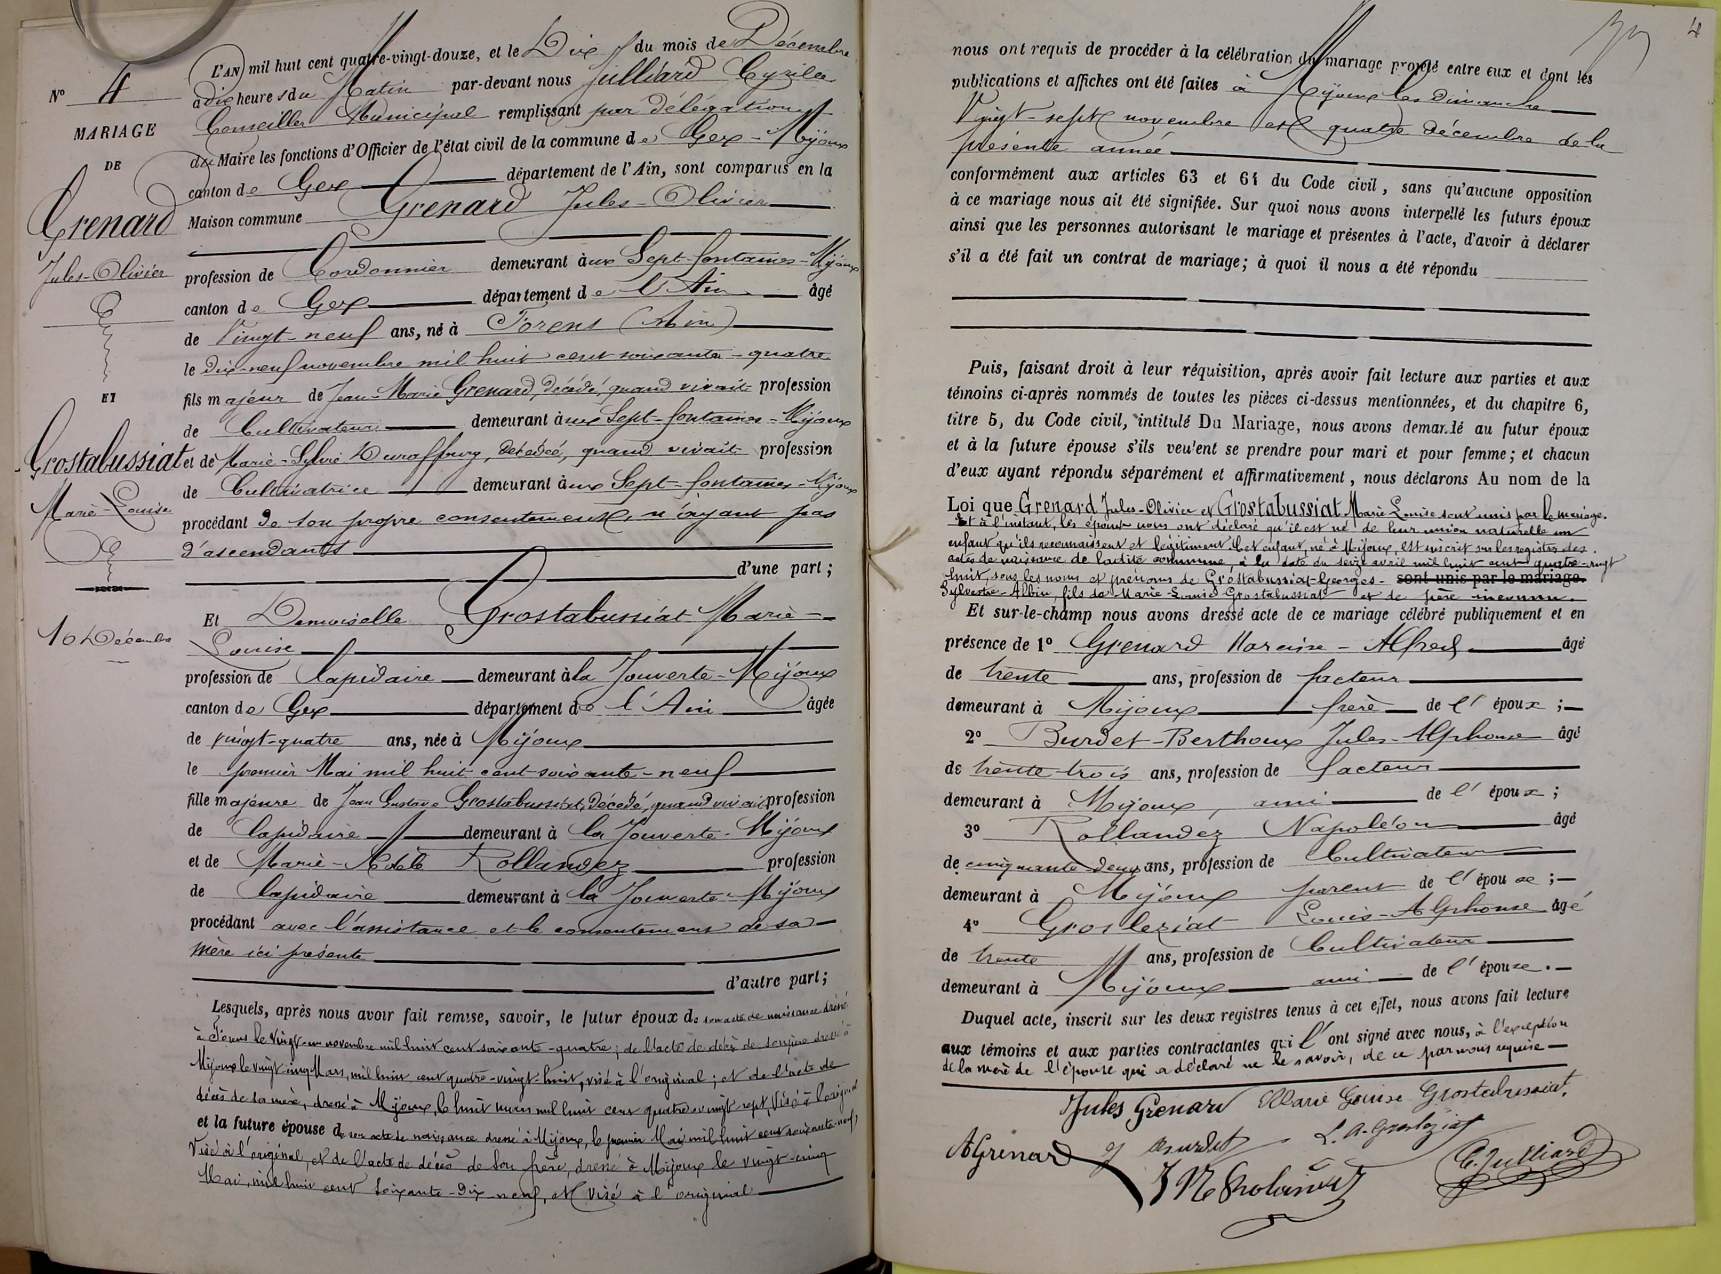 N° 4
MARIAGE
DE
Grenard
Jules-Olivier
ET
Grostabussiat
Marie-Louise
10 Décembre
L'AN mil huit cent quatre-vingt-douze, et le Dix du mois de Décembre
à dix heures du Matin par-devant nous Julliard Cyrille
Conseiller Municipal remplissant par délégation
du Maire les fonctions d'Officier de l'état civil de la commune de Gex-Mijoux
canton de Gex département de l'Ain, sont comparus en la
Maison commune Grenard Jules-Olivier
profession de Cordonnier demeurant aux Sept-fontaines-Mijoux
canton de Gex département de l'Ain âgé
de Vingt-neuf ans, né à Forens (Ain)
le dix-neuf novembre mil huit cent soixante-quatre
fils majeur de Jean-Marie Grenard, décédé, quand vivait profession
de Cultivateur demeurant aux Sept-fontaines-Mijoux
et de Marie-Sylvie Duraffourg, décédée, quand vivait profession
de Cultivatrice demeurant aux Sept-fontaines-Mijoux
procédant de son propre consentement, n'ayant pas
d'ascendants
d'une part;
Et Demoiselle Grostabussiat Marie-
Louise
profession de lapidaire demeurant à la Jouverte-Mijoux
canton de Gex département de l'Ain âgée
de vingt-quatre ans, née à Mijoux
le premier Mai mil huit cent soixante-neuf
fille majeure de Jean Gustave Grostabussiat, décédé, quand vivait profession
de lapidaire demeurant à la Jouverte-Mijoux
et de Marie- Rollandez profession
de lapidaire demeurant à la Jouverte-Mijoux
procédant avec l'assistance et le consentement de sa
mère ici présente
d'autre part;
Lesquels, après nous avoir fait remise, savoir, le futur époux de son acte de naissance dressé
à Forens le vingt-un novembre mil huit cent soixante-quatre; de l'acte de décès de son père dressé à
Mijoux le vingt cinq Mars, mil huit cent quatre-vingt-huit, visé à l'original; et de l'acte de
décès de sa mère, dressé à Mijoux, le huit mars mil huit cent quatre vingt sept, Visé à l'original
et la future épouse de son acte de naissance dressé à Mijoux, le premier Mai mil huit cent soixante-neuf,
Visé à l'original, et de l'acte de décès de son père, dressé à Mijoux le vingt-cinq
Mai, mil huit cent soixante-dix-neuf, et visé à l'original
4
nous ont requis de procéder à la célébration du mariage projeté entre eux et dont les
publications et affiches ont été faites à Mijoux les Dimanche
Vingt-sept novembre et quatre décembre de la
présente année
conformément aux articles 63 et 64 du Code civil, sans qu'aucune opposition
à ce mariage nous ait été signifiée. Sur quoi nous avons interpellé les futurs époux
ainsi que les personnes autorisant le mariage et présentes à l'acte, d'avoir à déclarer
s'il a été fait un contrat de mariage; à quoi il nous a été répondu
Puis, faisant droit à leur réquisition, après avoir fait lecture aux parties et aux
témoins ci-après nommés de toutes les pièces ci-dessus mentionnées, et du chapitre 6,
titre 5, du Code civil, intitulé Du Mariage, nous avons demandé au futur époux
et à la future épouse s'ils veulent se prendre pour mari et pour femme; et chacun
d'eux ayant répondu séparément et affirmativement, nous déclarons Au nom de la
Loi que Grenard Jules-Olivier et Grostabussiat Marie Louise sont unis par le mariage.
Et à l'instant, les époux nous ont déclaré qu'il est né de leur union naturelle un
enfant qu'ils reconnaissent et légitiment. Cet enfant, né à Mijoux, est inscrit sur les registres des
actes de naissance de ladite commune à la date du seize avril mil huit cent quatre-vingt
huit, sous les noms et prénoms de Grostabussiat-Georges- sont unis par le mariage.
Sylvestre-Albin, fils de Marie-Louise Grostabussiat et de père inconnu.
Et sur-le-champ nous avons dressé acte de ce mariage célébré publiquement et en
présence de 1° Grenard Narcisse-Alfred âgé
de trente ans, profession de facteur
demeurant à Mijoux frère de l'époux;
2° Burdet-Berthoux Jules-Alphonse âgé
de trente-trois ans, profession de facteur
demeurant à Mijoux, ami de l'époux;
3° Rollandez Napoléon âgé
de cinquante deux ans, profession de Cultivateur
demeurant à Mijoux parent de l'épouse;
4° Grosleziat Louis-Alphonse âgé
de trente ans, profession de Cultivateur
demeurant à Mijoux ami de l'épouse.
Duquel acte, inscrit sur les deux registres tenus à cet effet, nous avons fait lecture
aux témoins et aux parties contractantes qui l'ont signé avec nous, à l'exception
de la mère de l'épouse qui a déclaré ne le savoir, de ce par nous requise
Jules Grenard Marie Louise Grostabussiat.
A Grenard J Burdet L. A. Grosleziat
C. Julliard